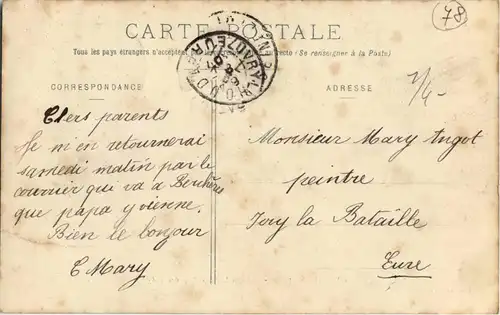 78
CARTE POSTALE
Tous les pays étrangers n'acceptent pas la
(Se renseigner à la Poste)
CORRESPONDANCE
ADRESSE
Chers parents
Je m'en retournerai
samedi matin par le
courrier qui va a Berchères
que papa y vienne.
Bien le bonjour
E Mary
Monsieur Mary Angot
peintre
Ivry la Bataille
Eure